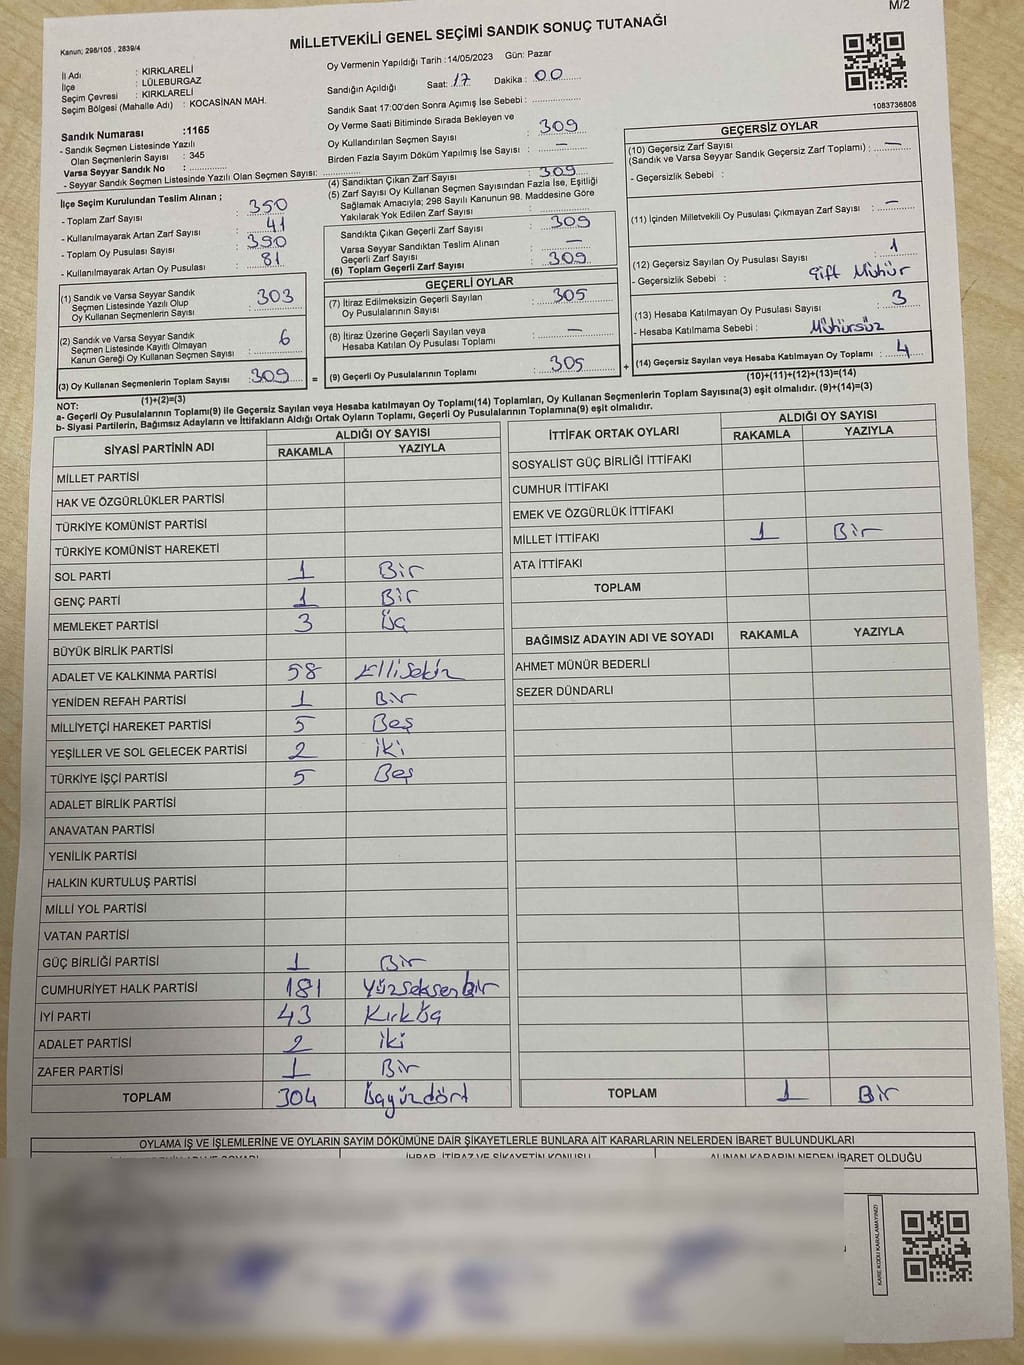 M/2
Kanun; 298/105 , 2839/4
MİLLETVEKİLİ GENEL SEÇİMİ SANDIK SONUÇ TUTANAĞI
İl Adı : KIRKLARELİ
İlçe : LÜLEBURGAZ
Seçim Çevresi : KIRKLARELİ
Seçim Bölgesi (Mahalle Adı) : KOCASİNAN MAH.
Sandık Numarası :1165
- Sandık Seçmen Listesinde Yazılı
Olan Seçmenlerin Sayısı : 345
Varsa Seyyar Sandık No :
- Seyyar Sandık Seçmen Listesinde Yazılı Olan Seçmen Sayısı:
İlçe Seçim Kurulundan Teslim Alınan ;
- Toplam Zarf Sayısı : 350
- Kullanılmayarak Artan Zarf Sayısı : 41
- Toplam Oy Pusulası Sayısı : 390
- Kullanılmayarak Artan Oy Pusulası : 81
(1) Sandık ve Varsa Seyyar Sandık
Seçmen Listesinde Yazılı Olup
Oy Kullanan Seçmenlerin Sayısı : 303
(2) Sandık ve Varsa Seyyar Sandık
Seçmen Listesinde Kayıtlı Olmayan
Kanun Gereği Oy Kullanan Seçmen Sayısı : 6
(3) Oy Kullanan Seçmenlerin Toplam Sayısı : 309
(1)+(2)=(3)
Oy Vermenin Yapıldığı Tarih :14/05/2023 Gün: Pazar
Sandığın Açıldığı Saat: 17 Dakika : 00
Sandık Saat 17:00'den Sonra Açımış İse Sebebi :
Oy Verme Saati Bitiminde Sırada Bekleyen ve
Oy Kullandırılan Seçmen Sayısı : 309
Birden Fazla Sayım Döküm Yapılmış İse Sayısı : –
(4) Sandıktan Çıkan Zarf Sayısı : 309
(5) Zarf Sayısı Oy Kullanan Seçmen Sayısından Fazla İse, Eşitliği
Sağlamak Amacıyla; 298 Sayılı Kanunun 98. Maddesine Göre
Yakılarak Yok Edilen Zarf Sayısı :
Sandıkta Çıkan Geçerli Zarf Sayısı : 309
Varsa Seyyar Sandıktan Teslim Alınan
Geçerli Zarf Sayısı : –
(6) Toplam Geçerli Zarf Sayısı : 309
GEÇERLİ OYLAR
(7) İtiraz Edilmeksizin Geçerli Sayılan
Oy Pusulalarının Sayısı : 305
(8) İtiraz Üzerine Geçerli Sayılan veya
Hesaba Katılan Oy Pusulası Toplamı : –
= (9) Geçerli Oy Pusulalarının Toplamı : 305 +
1083736808
GEÇERSİZ OYLAR
(10) Geçersiz Zarf Sayısı
(Sandık ve Varsa Seyyar Sandık Geçersiz Zarf Toplamı) : –
- Geçersizlik Sebebi :
(11) İçinden Milletvekili Oy Pusulası Çıkmayan Zarf Sayısı : –
(12) Geçersiz Sayılan Oy Pusulası Sayısı : 1
- Geçersizlik Sebebi : Çift Mühür
(13) Hesaba Katılmayan Oy Pusulası Sayısı : 3
- Hesaba Katılmama Sebebi : Mühürsüz
(14) Geçersiz Sayılan veya Hesaba Katılmayan Oy Toplamı : 4
(10)+(11)+(12)+(13)=(14)
NOT:
a- Geçerli Oy Pusulalarının Toplamı(9) ile Geçersiz Sayılan veya Hesaba katılmayan Oy Toplamı(14) Toplamları, Oy Kullanan Seçmenlerin Toplam Sayısına(3) eşit olmalıdır. (9)+(14)=(3)
b- Siyasi Partilerin, Bağımsız Adayların ve İttifakların Aldığı Ortak Oyların Toplamı, Geçerli Oy Pusulalarının Toplamına(9) eşit olmalıdır.
SİYASİ PARTİNİN ADI ALDIĞI OY SAYISI
RAKAMLA YAZIYLA
MİLLET PARTİSİ
HAK VE ÖZGÜRLÜKLER PARTİSİ
TÜRKİYE KOMÜNİST PARTİSİ
TÜRKİYE KOMÜNİST HAREKETİ
SOL PARTİ 1 Bir
GENÇ PARTİ 1 Bir
MEMLEKET PARTİSİ 3 Üç
BÜYÜK BİRLİK PARTİSİ
ADALET VE KALKINMA PARTİSİ 58 Ellisekiz
YENİDEN REFAH PARTİSİ 1 Bir
MİLLİYETÇİ HAREKET PARTİSİ 5 Beş
YEŞİLLER VE SOL GELECEK PARTİSİ 2 iki
TÜRKİYE İŞÇİ PARTİSİ 5 Beş
ADALET BİRLİK PARTİSİ
ANAVATAN PARTİSİ
YENİLİK PARTİSİ
HALKIN KURTULUŞ PARTİSİ
MİLLİ YOL PARTİSİ
VATAN PARTİSİ
GÜÇ BİRLİĞİ PARTİSİ 1 Bir
CUMHURİYET HALK PARTİSİ 181 Yüzseksenbir
İYİ PARTİ 43 Kırküç
ADALET PARTİSİ 2 iki
ZAFER PARTİSİ 1 Bir
TOPLAM 304 Üçyüzdört
İTTİFAK ORTAK OYLARI ALDIĞI OY SAYISI
RAKAMLA YAZIYLA
SOSYALİST GÜÇ BİRLİĞİ İTTİFAKI
CUMHUR İTTİFAKI
EMEK VE ÖZGÜRLÜK İTTİFAKI
MİLLET İTTİFAKI 1 Bir
ATA İTTİFAKI
TOPLAM
BAĞIMSIZ ADAYIN ADI VE SOYADI RAKAMLA YAZIYLA
AHMET MÜNÜR BEDERLİ
SEZER DÜNDARLI
TOPLAM 1 Bir
OYLAMA İŞ VE İŞLEMLERİNE VE OYLARIN SAYIM DÖKÜMÜNE DAİR ŞİKAYETLERLE BUNLARA AİT KARARLARIN NELERDEN İBARET BULUNDUKLARI
İHBAR, İTİRAZ VE ŞİKAYETİN KONUSU ALINAN KARARIN NEDEN İBARET OLDUĞU
KARE KODU KARALAMAYINIZ!